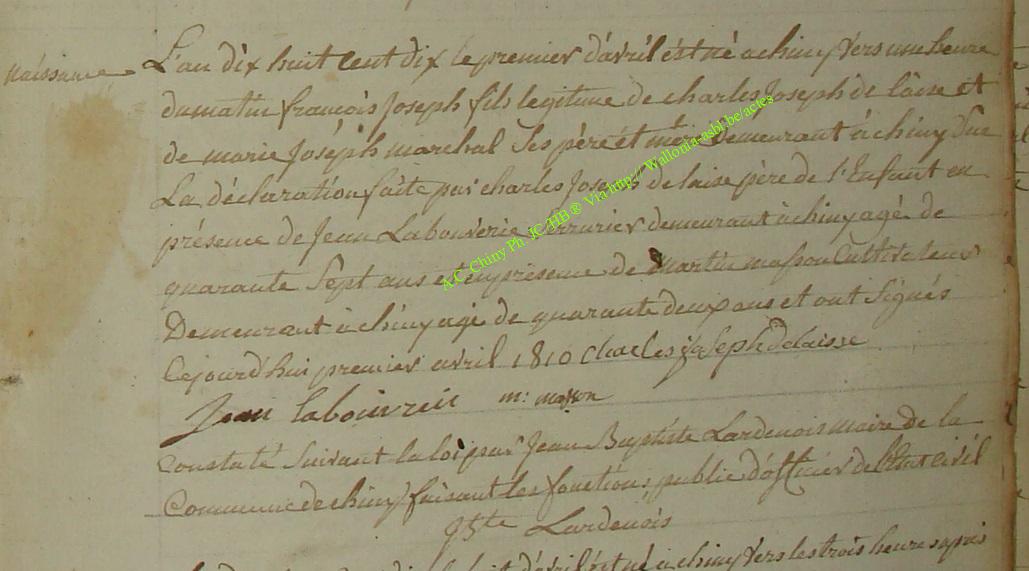 naissance
L'an dix huit cent dix le premier d'avril ést né a chiny vers une heure
du matin francois Joseph fils legitime de charles Joseph de laise et
de marie Joséph marchal Ses pére ét mére demeurant à chiny Sur
La déclaration faite par charles Joseph de laise pére de l'Enfant en
présence de Jean Labouverie Serrurier demeurant à chiny agé de
quarante Sept ans et en présence de martin masson Cultivateur
Demeurant à chiny agé de quarante deux ans et ont Signés
Cejourd'hui premier avril 1810 Charles joseph Delaisse
Jean labouverie m: masson
Constaté Suivant la loi par Jean Baptiste Lardenois maire de la
Commune de chiny faisant les fonctions public d'officier de l'Etat civil
Lardenois
d'avril ést né a chiny vers les trois heures aprés
A.C. Chiny Ph. JC HB ® Via http://Wallonia-asbl.be/actes